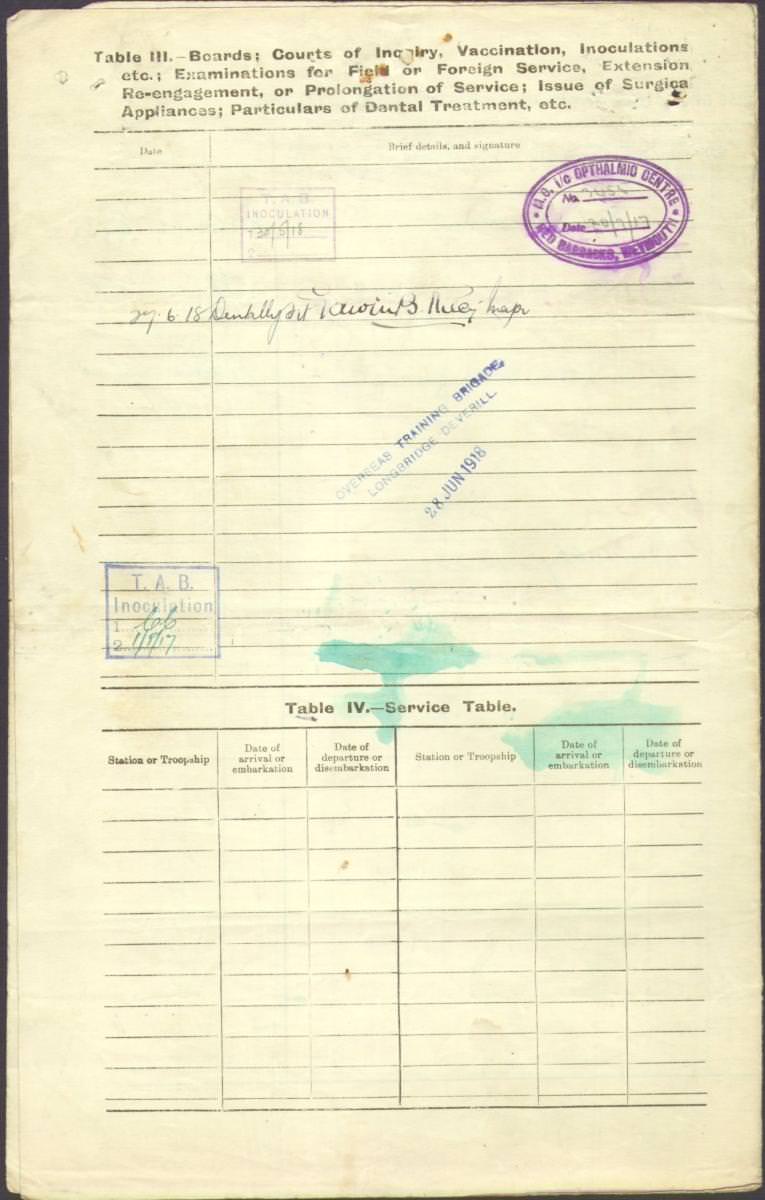 Table III.—Boards; Courts of Inquiry, Vaccination, Inoculations
etc.; Examinations for Field or Foreign Service, Extension
Re-engagement, or Prolongation of Service; Issue of Surgica
Appliances; Particulars of Dental Treatment, etc.
Date
Brief details, and signature
T. A. B.
INOCULATION
1
2
M.O. I/C OPTHALMIC CENTRE
No.
Date
RED BARRACKS, WEYMOUTH
27.6.18 Dentally fit
OVERSEAS TRAINING BRIGADE,
LONGBRIDGE DEVERILL
28 JUN 1918
T. A. B.
Inoculation
1
2 1/7/17
Table IV.—Service Table.
Station or Troopship
Date of
arrival or
embarkation
Date of
departure or
disembarkation
Station or Troopship
Date of
arrival or
embarkation
Date of
departure or
disembarkation